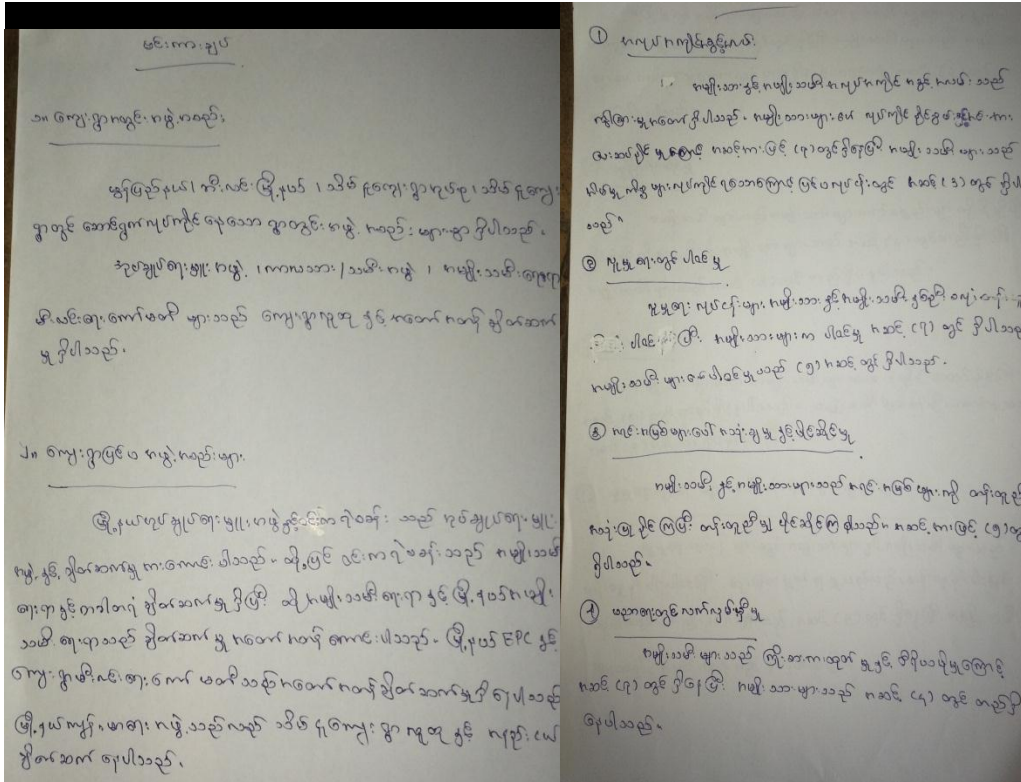 မင်းကားချပ်
၁။ ကျေးရွာအတွင်း အဖွဲ့အစည်း
မွန်ပြည်နယ်၊ ဘီးလင်းမြို့နယ်၊ သိမ်ဇူကျေးရွာအုပ်စု၊ သိမ်ဇူကျေး
ရွာတွင် ဆောင်ရွက်လုပ်ကိုင်နေသော ရွာတွင်းအဖွဲ့ အစည်းများစွာ ရှိပါသည်။
အုပ်ချုပ်ရေးမှူးအဖွဲ့၊ ကာလသား/သမီးအဖွဲ့၊ အမျိုးသမီးရေးရာ
မီးလင်းရေးကော်မတီ များသည် ကျေးရွာလူထု နှင့် အတော်အတန် ချိတ်ဆက်
မှု ရှိပါသည်။
၂။ ကျေးရွာပြင်ပ အဖွဲ့အစည်းများ
မြို့နယ်အုပ်ချုပ်ရေးမှူးအဖွဲ့နှင့်ဝင်းကရဲစခန်း သည် အုပ်ချုပ်ရေးမှူး
အဖွဲ့နှင့် ချိတ်ဆက်မှု ကောင်းပါသည်။ ထို့ပြင် ဝင်းကရဲစခန်းသည် အမျိုးသမီး
ရေးရာနှင့်တခါတရံ ချိတ်ဆက်မှုရှိပြီး ထိုအမျိုးသမီးရေးရာနှင့်မြို့နယ်အမျိုး
သမီးရေးရာသည် ချိတ်ဆက်မှု အတော်အတန် ကောင်းပါသည်။ မြို့နယ် EPC နှင့်
ကျေးရွာမီးလင်းရေးကော်မတီသည်အတော်အတန်ချိတ်ဆက်မှုရှိနေပါသည်
မြို့နယ်ကျန်းမာရေးအဖွဲ့သည်လည်း သိမ်ဇူကျေးရွာလူထု နှင့် အနည်းငယ်
ချိတ်ဆက်နေပါသည်။
① အလုပ်အကိုင်အခွင့်အလမ်း
အမျိုးသားနှင့် အမျိုးသမီး အလုပ်အကိုင် အခွင့်အလမ်း သည်
ကွဲပြားမှုအတော်ရှိပါသည်။ အမျိုးသားများ လုပ်ကိုင်နိုင်စွမ်း
မှုကြောင့် အဆင့်အားဖြင့် (၇)တွင်ရှိနေပြီး အမျိုးသမီးများသည်
အိမ်မှုကိစ္စများလုပ်ကိုင်ရသောကြောင့် ပြင်ပလုပ်ငန်းတွင် အဆင့် (၃) တွင် ရှိပါ
သည်။
② လူမှုရေးတွင် ပါဝင်မှု
လူမှုရေး လုပ်ငန်းများ အမျိုးသား နှင့် အမျိုးသမီး နှစ်ဦး
ပါဝင် ပြီး အမျိုးသားများက ပါဝင်မှု အဆင့် (၇) တွင် ရှိပါသည်
အမျိုးသမီးများ ပါဝင်မှုသည် (၅) အဆင့်တွင် ရှိပါသည်။
③ အရင်းအမြစ်များပေါ် အသုံးချမှုနှင့် ပိုင်ဆိုင်မှု
အမျိုးသမီးနှင့် အမျိုးသားများသည် အရင်းအမြစ်များကို တန်းတူညီ
အသုံးပြုနိုင်ကြပြီး တန်းတူညီမျှ ပိုင်ဆိုင်ကြပါသည်။ အဆင့်အားဖြင့် (၅)တွ
ရှိပါသည်။
④ ပညာရေးတွင်လက်လှမ်းမှီမှု
အမျိုးသမီးများသည် ကြိုးစားအားထုတ်မှုနှင့် ဇွဲရှိမှုကြောင့်
အဆင့် (၇) တွင်ရှိနေပြီး အမျိုးသားများသည် အဆင့် (၄) တွင် တည်ရှိ
နေပါသည်။